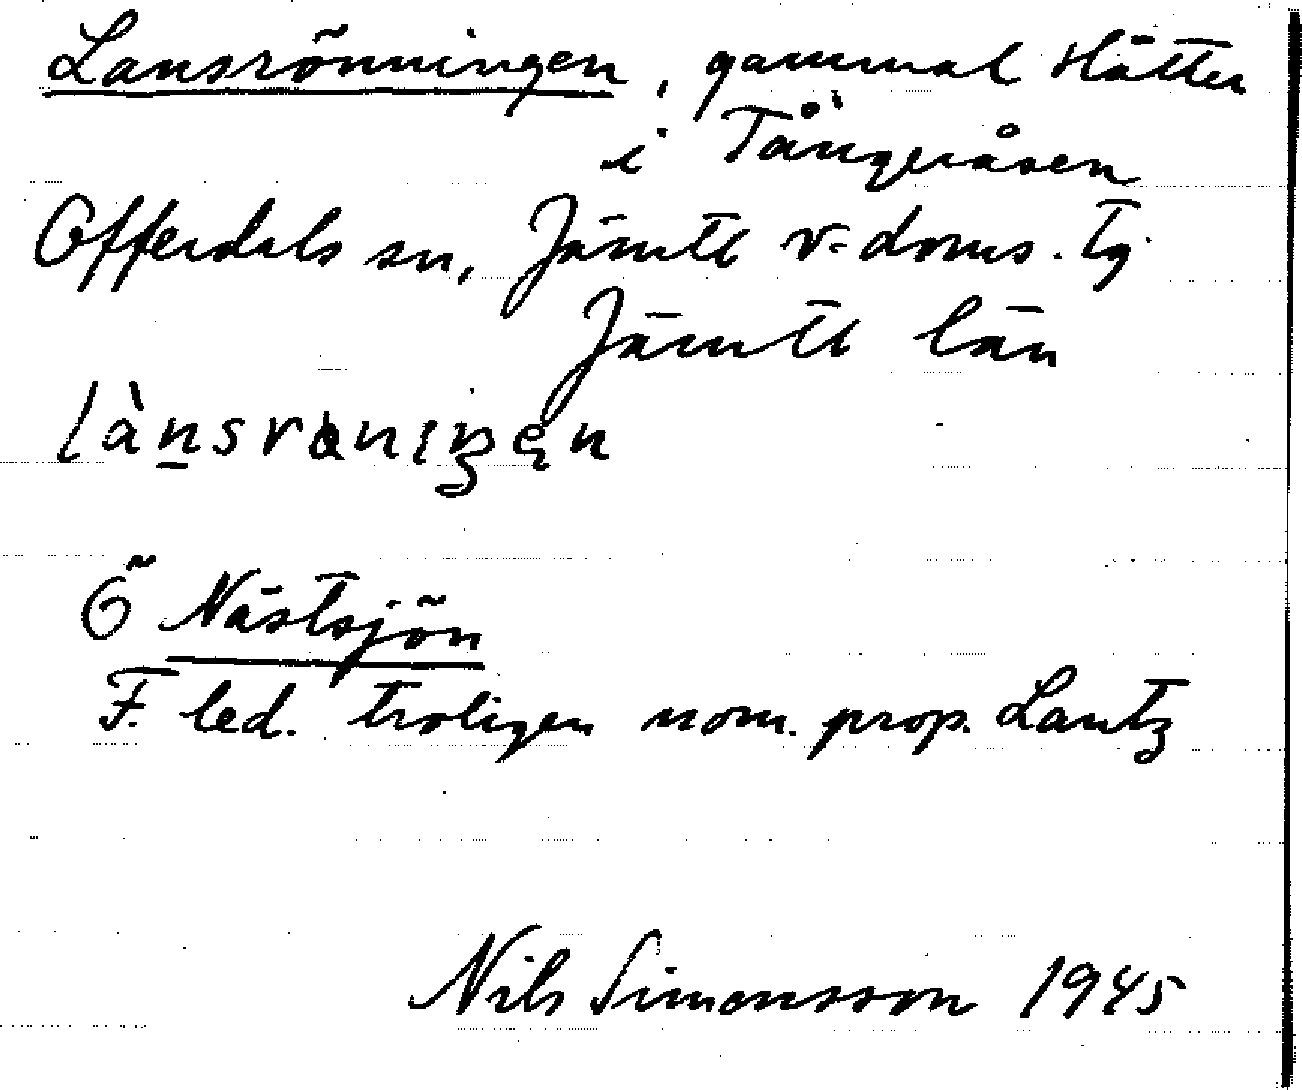 Lansrönningen, gammal slåtter
i Tångeråsen
Offerdals sn, Jämtl v. doms. tg
Jämtl län
Ö Nästsjön
F. led. troligen nom. prop. Lantz
Nils Simonsson 1945